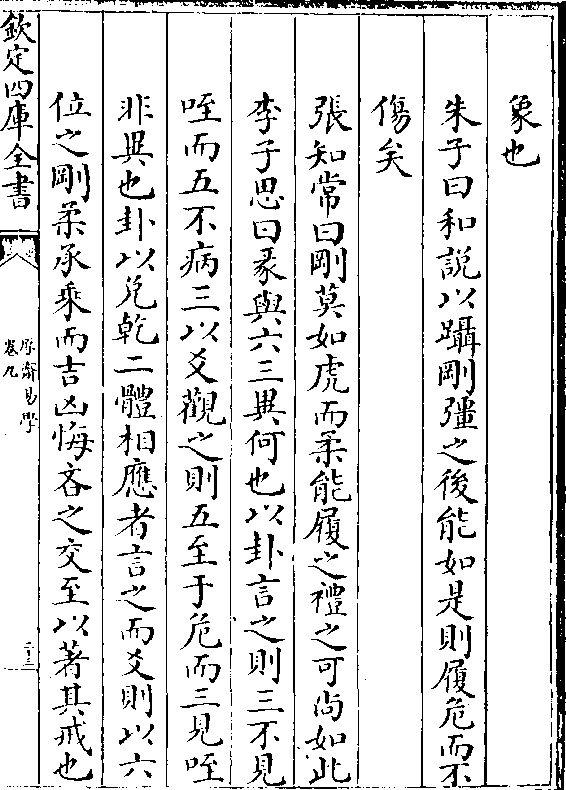 象也
朱子曰和説以躡剛彊之後能如是則履危而不
傷矣
張知常曰剛莫如虎而柔能履之禮之可尚如此
李子思曰彖與六三異何也以卦言之則三不見
咥而五不病三以爻觀之則五至于危而三見咥
非異也卦以兌乾二體相應者言之而爻則以六
位之剛柔承乘而吉凶悔吝之交至以著其戒也
欽定四庫全書
厚齋易學
卷九
二十三